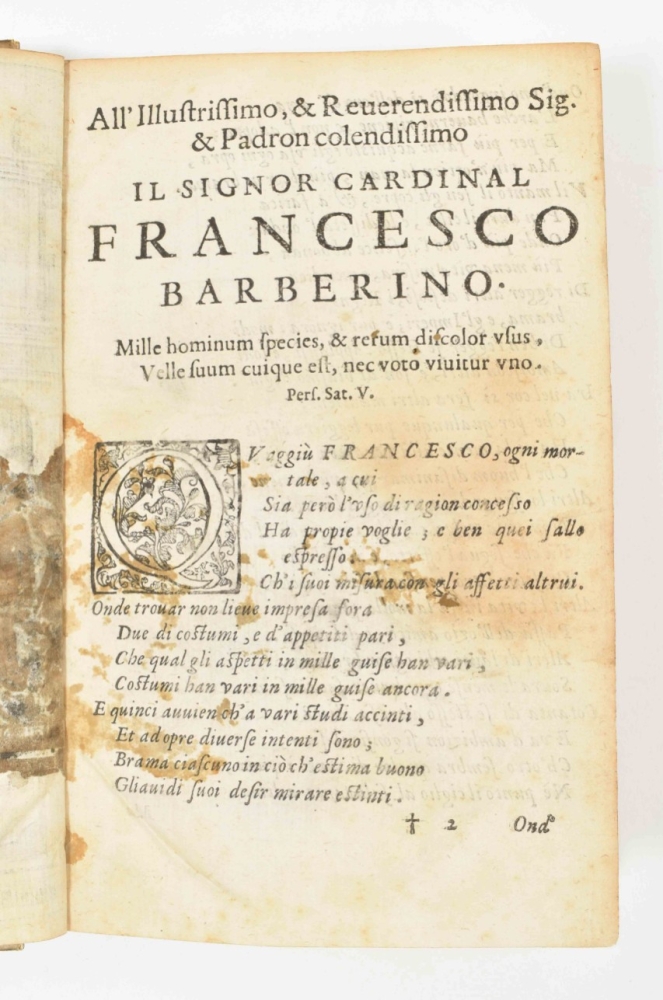 All'Illustrissimo, & Reuerendissimo Sig.
& Padron colendissimo
IL SIGNOR CARDINAL
FRANCESCO
BARBERINO.
Mille hominum species, & rerum discolor vsus,
Velle suum cuique est, nec voto viuitur vno.
Pers. Sat. V.
QVaggiù FRANCESCO, ogni mor-
tale, a cui
Sia però l'vso di ragion concesso
Ha propie voglie; e ben quei sallo
espresso:
Ch'i suoi misura con gli affetti altrui.
Onde trouar non lieue impresa fora
Due di costumi, e d'appetiti pari,
Che qual gli aspetti in mille guise han vari,
Costumi han vari in mille guise ancora.
E quinci auuien ch'a vari studi accinti,
Et ad opre diuerse intenti sono;
Brama ciascuno in ciò ch'estima buono
Gliauidi suoi desir mirare estinti.
† 2 Onde